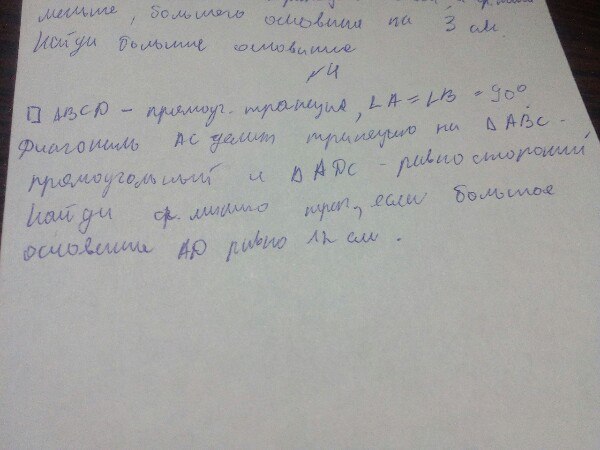 меньше, большего основания на 3 см
Найди большее основание
№4
□ ABCD - прямоуг. трапеция, ∠A = ∠B = 90°
Диагональ AC делит трапецию на ΔABC -
прямоугольный и ΔADC - равносторонний
Найди ср. линию трап, если большое
основание AD равно 12 см.